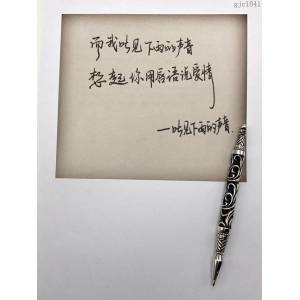 gjc1841
而我听见下雨的声音
想起你用唇语说爱情
—听见下雨的声音.